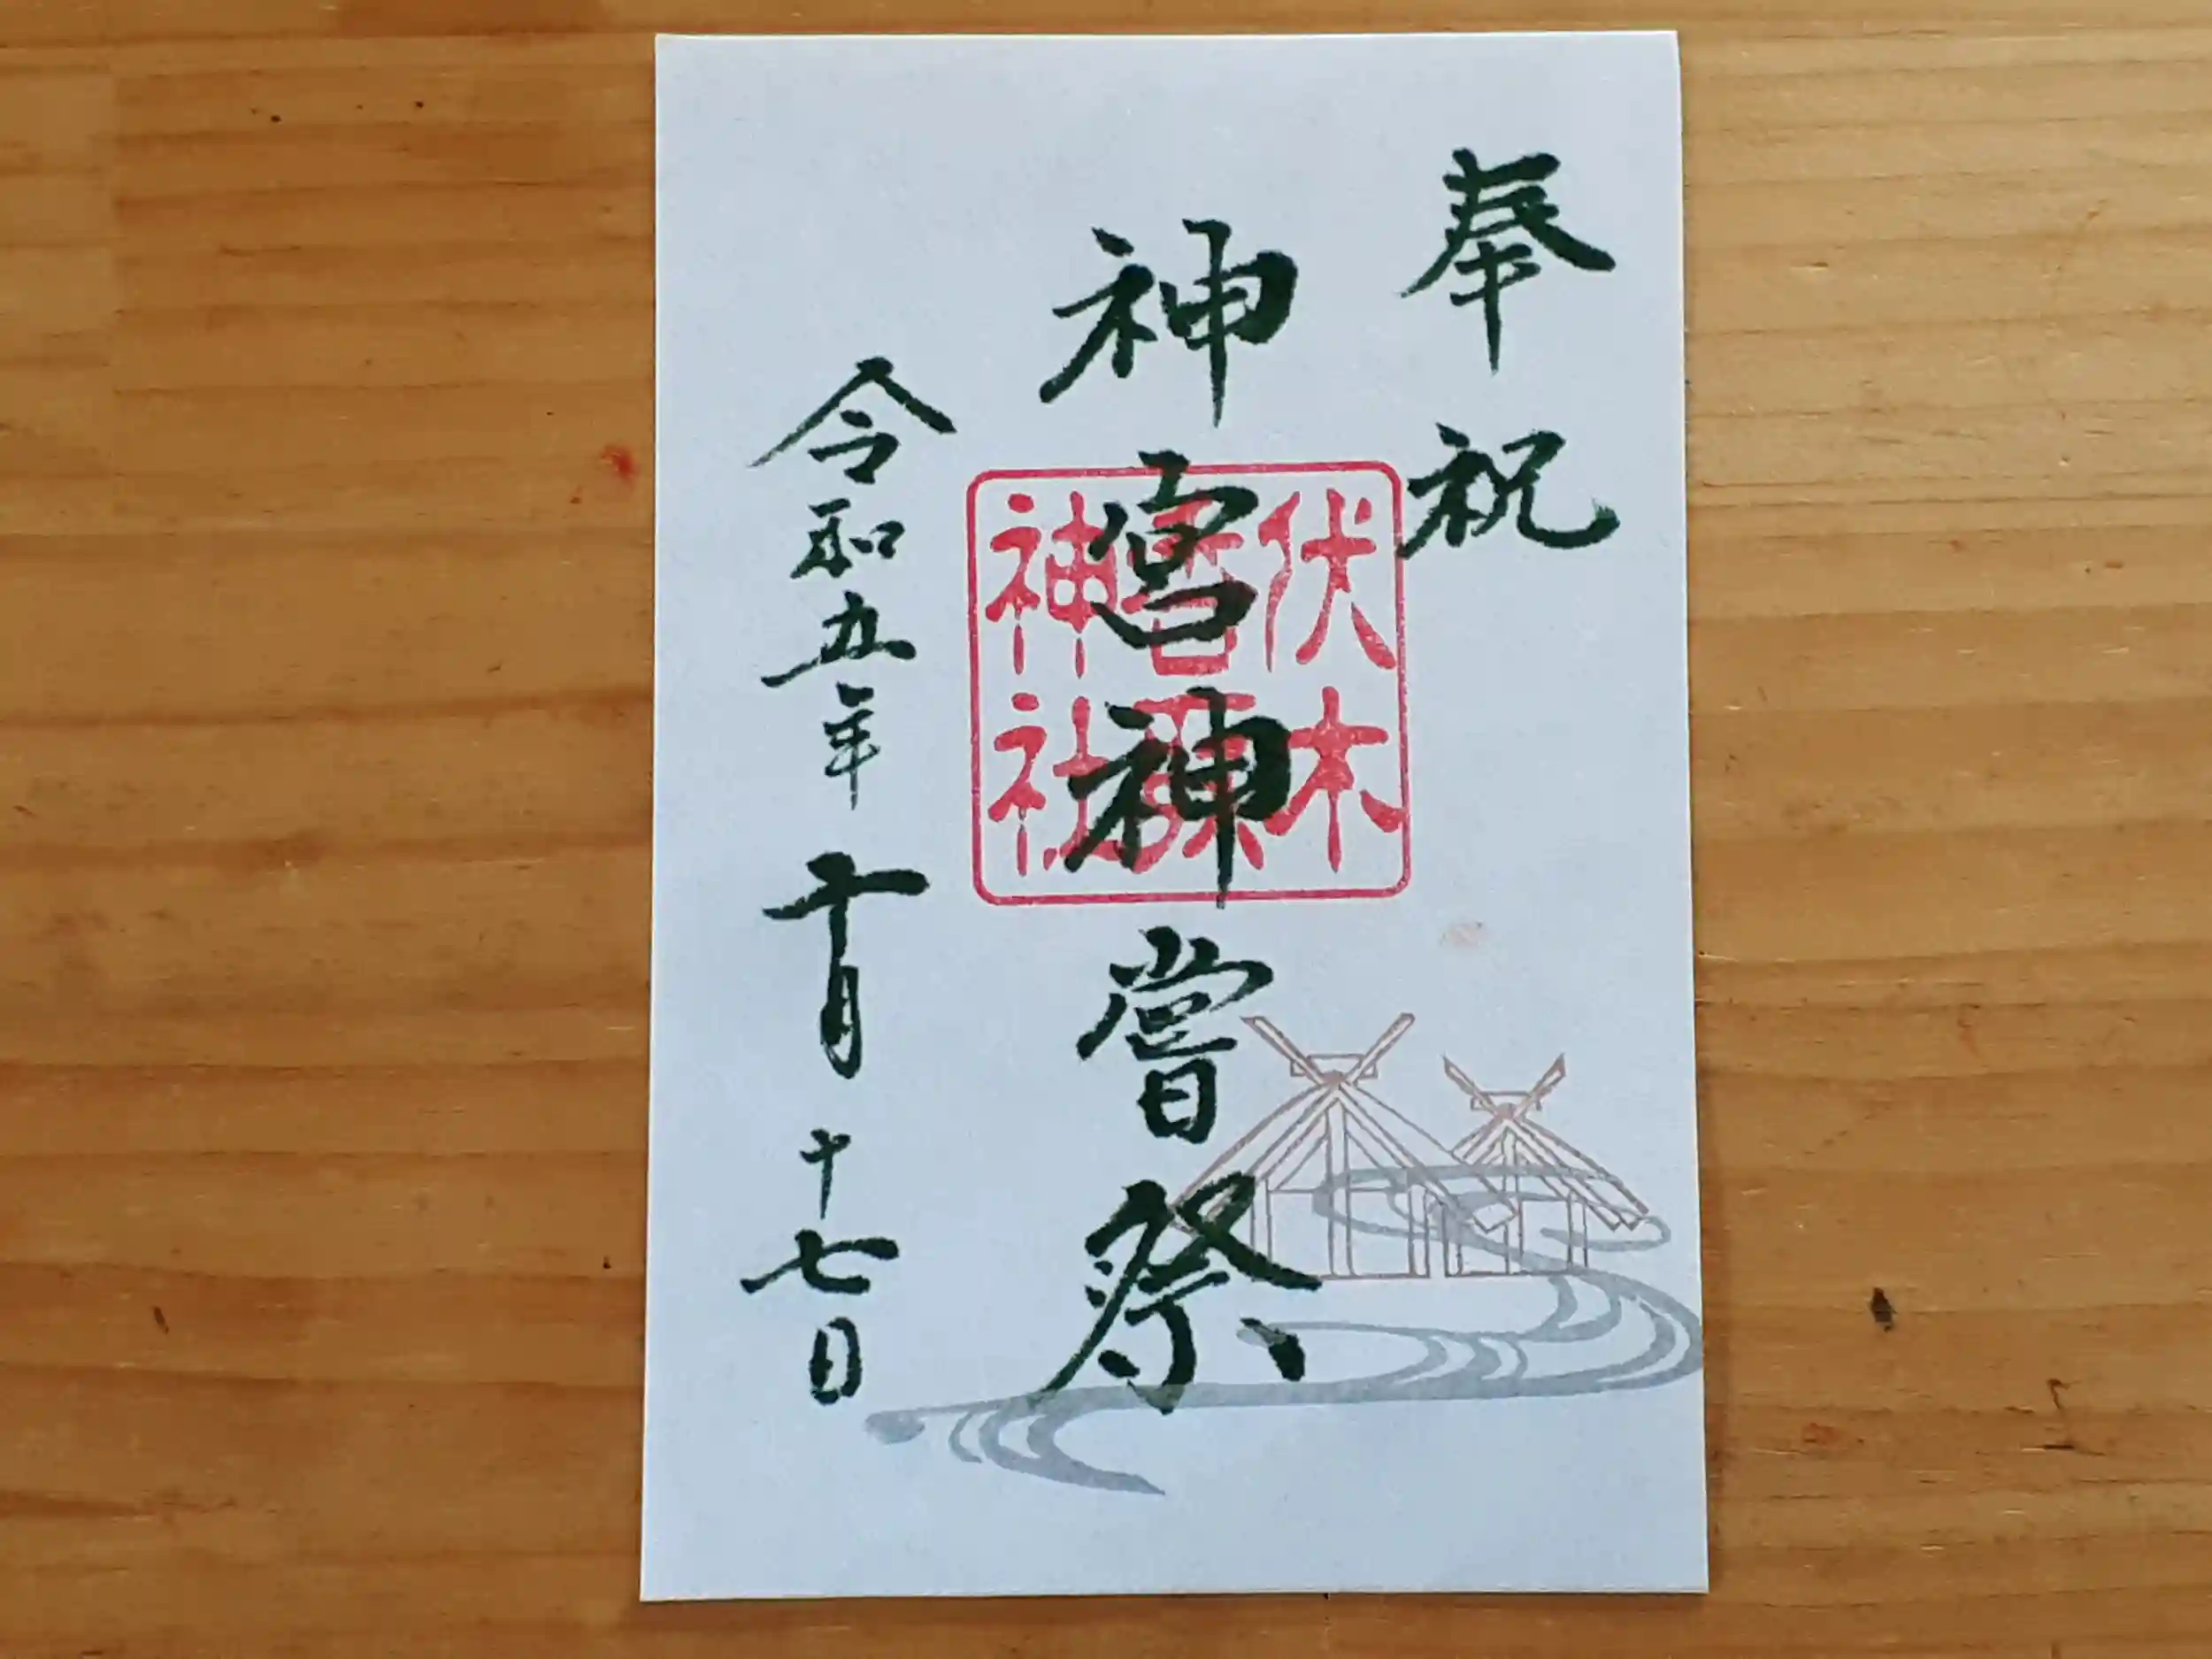 奉祝
神宮神嘗祭
令和五年十月十七日
伏木
香取
神社